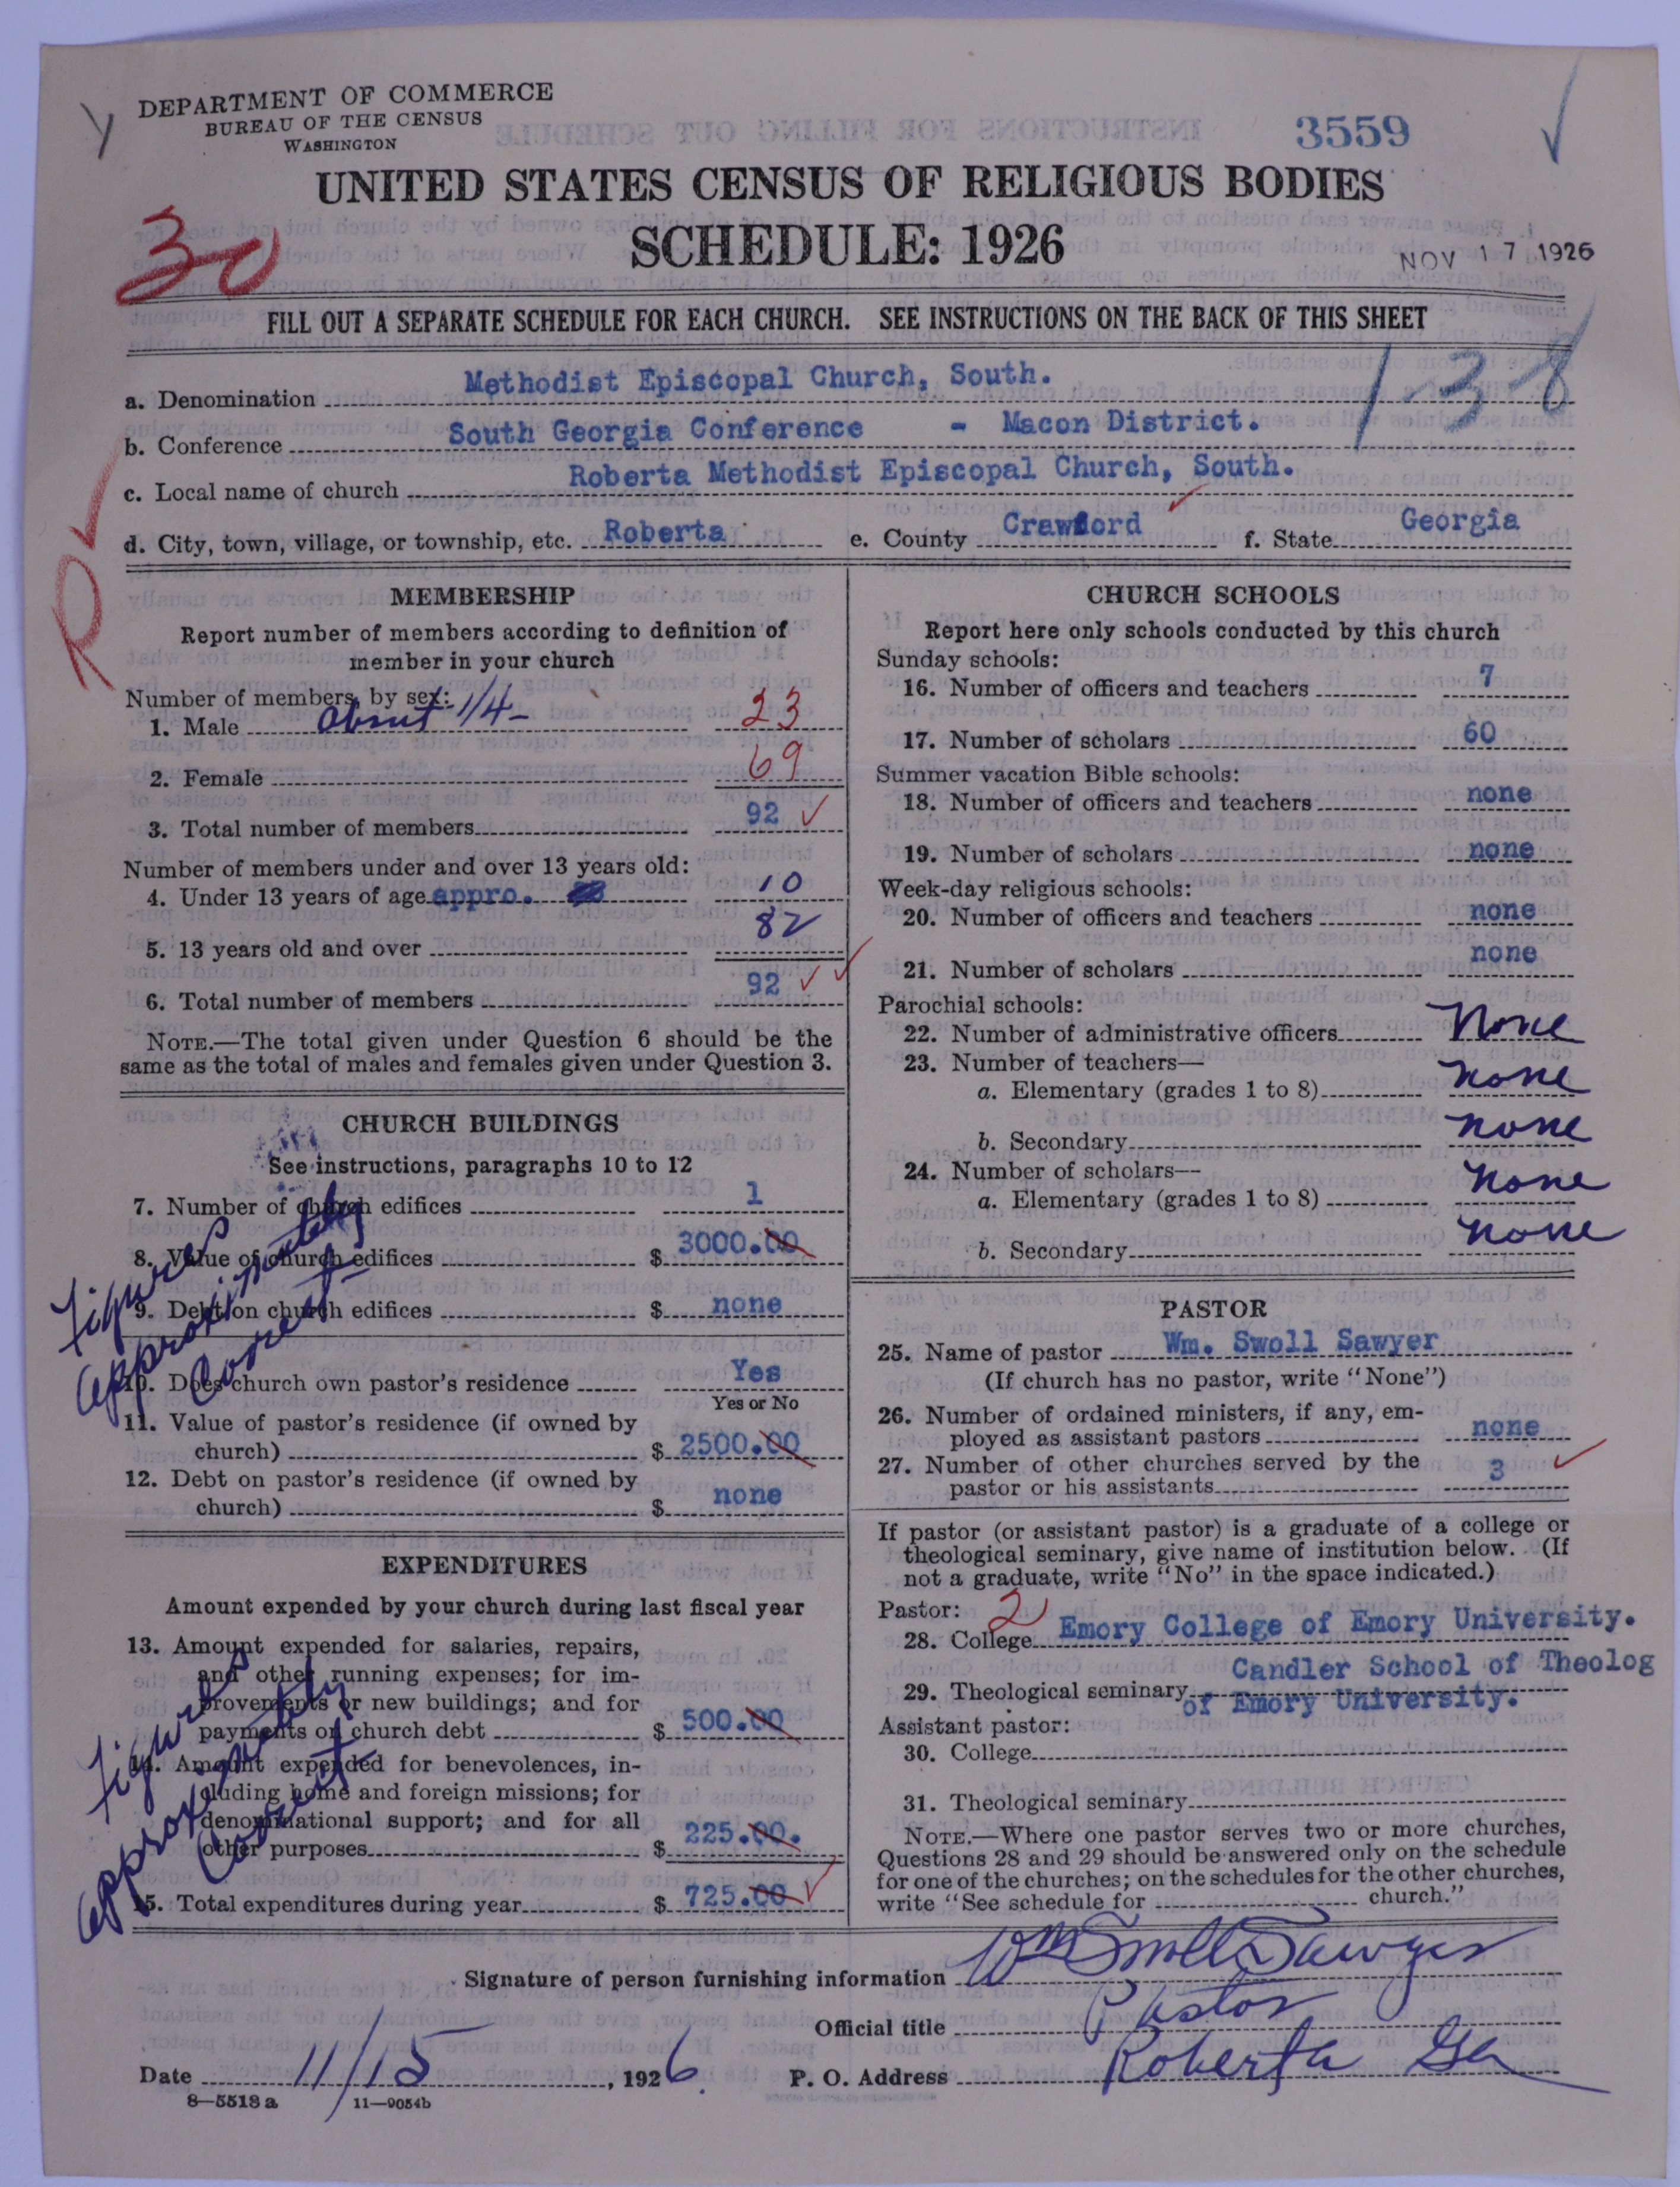 DEPARTMENT OF COMMERCE
BUREAU OF THE CENSUS
WASHINGTON
3559
UNITED STATES CENSUS OF RELIGIOUS BODIES
SCHEDULE: 1926
30
NOV 17 1926
FILL OUT A SEPARATE SCHEDULE FOR EACH CHURCH. SEE INSTRUCTIONS ON THE BACK OF THIS SHEET
1-38
a. Denomination Methodist Episcopal Church, South.
b. Conference South Georgia Conference - Macon District.
c. Local name of church Roberta Methodist Episcopal Church, South.
d. City, town, village, or township, etc. Roberta e. County Crawford f. State Georgia
R
MEMBERSHIP
Report number of members according to definition of
member in your church
Number of members by sex:
1. Male about 1/4- 23
2. Female 69
3. Total number of members 92
Number of members under and over 13 years old:
4. Under 13 years of age appro. 10
5. 13 years old and over 82
6. Total number of members 92
NOTE.—The total given under Question 6 should be the
same as the total of males and females given under Question 3.
CHURCH BUILDINGS
See instructions, paragraphs 10 to 12
7. Number of church edifices 1
8. Value of church edifices $ 3000.00
9. Debt on church edifices $ none
Figures
approximately
Correct
10. Does church own pastor's residence Yes
Yes or No
11. Value of pastor's residence (if owned by
church) $ 2500.00
12. Debt on pastor's residence (if owned by
church) $ none
EXPENDITURES
Amount expended by your church during last fiscal year
13. Amount expended for salaries, repairs,
and other running expenses; for im-
provements or new buildings; and for
payments on church debt $ 500.00
14. Amount expended for benevolences, in-
cluding home and foreign missions; for
denominational support; and for all
other purposes $ 225.00.
15. Total expenditures during year $ 725.00
Figures
approximately
Correct
CHURCH SCHOOLS
Report here only schools conducted by this church
Sunday schools:
16. Number of officers and teachers 7
17. Number of scholars 60
Summer vacation Bible schools:
18. Number of officers and teachers none
19. Number of scholars none
Week-day religious schools:
20. Number of officers and teachers none
21. Number of scholars none
Parochial schools:
22. Number of administrative officers None
23. Number of teachers—
a. Elementary (grades 1 to 8) none
b. Secondary none
24. Number of scholars—
a. Elementary (grades 1 to 8) none
b. Secondary none
PASTOR
25. Name of pastor Wm. Swoll Sawyer
(If church has no pastor, write "None")
26. Number of ordained ministers, if any, em-
ployed as assistant pastors none
27. Number of other churches served by the
pastor or his assistants 3
If pastor (or assistant pastor) is a graduate of a college or
theological seminary, give name of institution below. (If
not a graduate, write "No" in the space indicated.)
Pastor: 2
28. College Emory College of Emory University.
Candler School of Theolog
29. Theological seminary of Emory University.
Assistant pastor:
30. College
31. Theological seminary
NOTE.—Where one pastor serves two or more churches,
Questions 28 and 29 should be answered only on the schedule
for one of the churches; on the schedules for the other churches,
write "See schedule for church."
Signature of person furnishing information Wm Swoll Sawyer
Official title Pastor
Date 11/15, 1926. P. O. Address Roberta Ga
8—5518 a 11—9054b